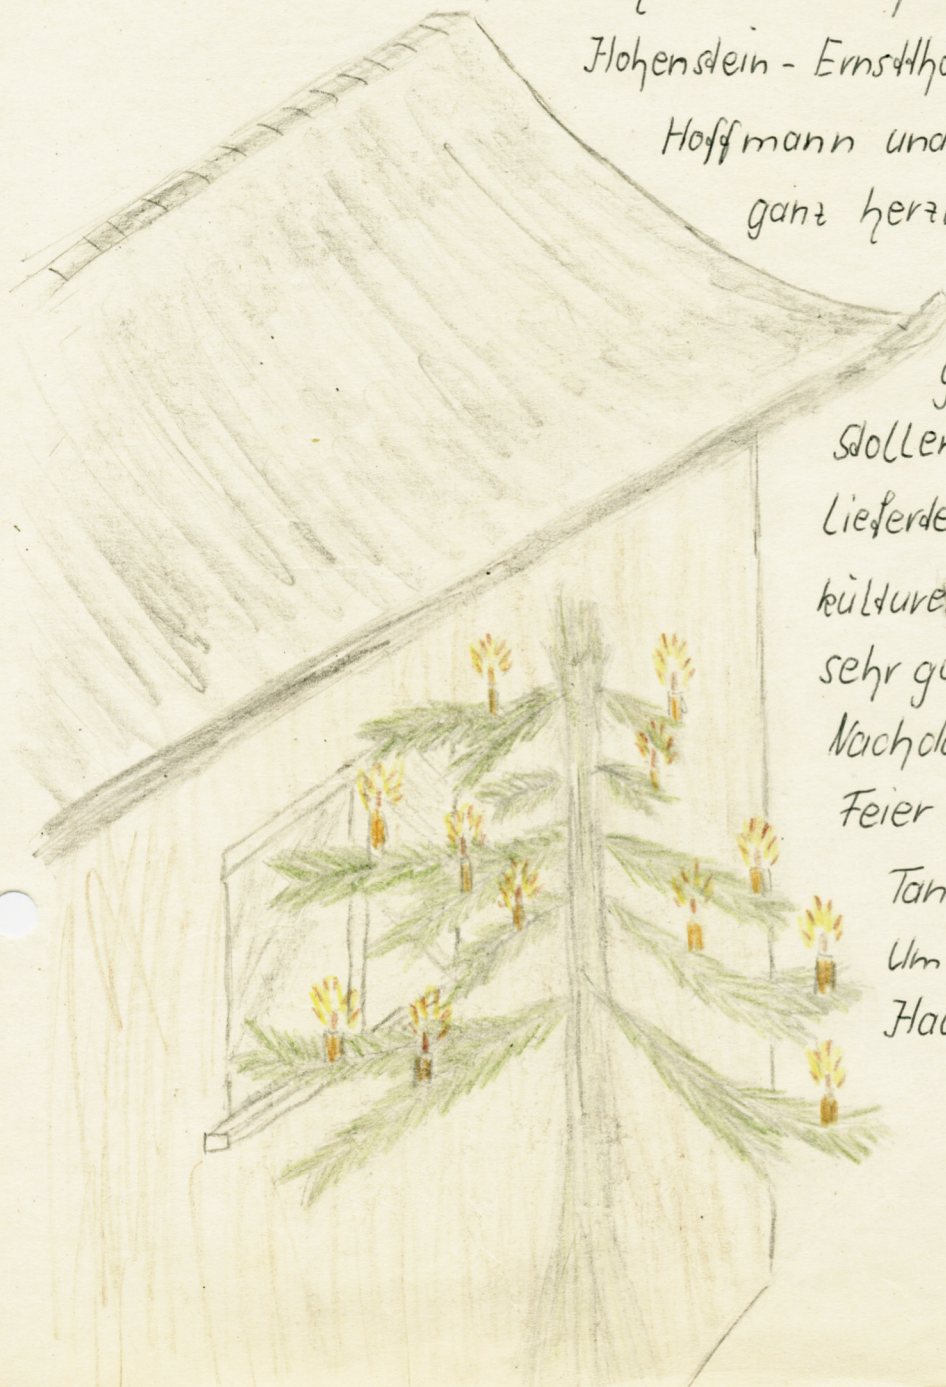 Hohenstein - Ernstth
Hoffmann und
ganz herz
g
stollen
lieferte
kulture
sehr gu
Nachd
Feier
Tan
Um
Hau